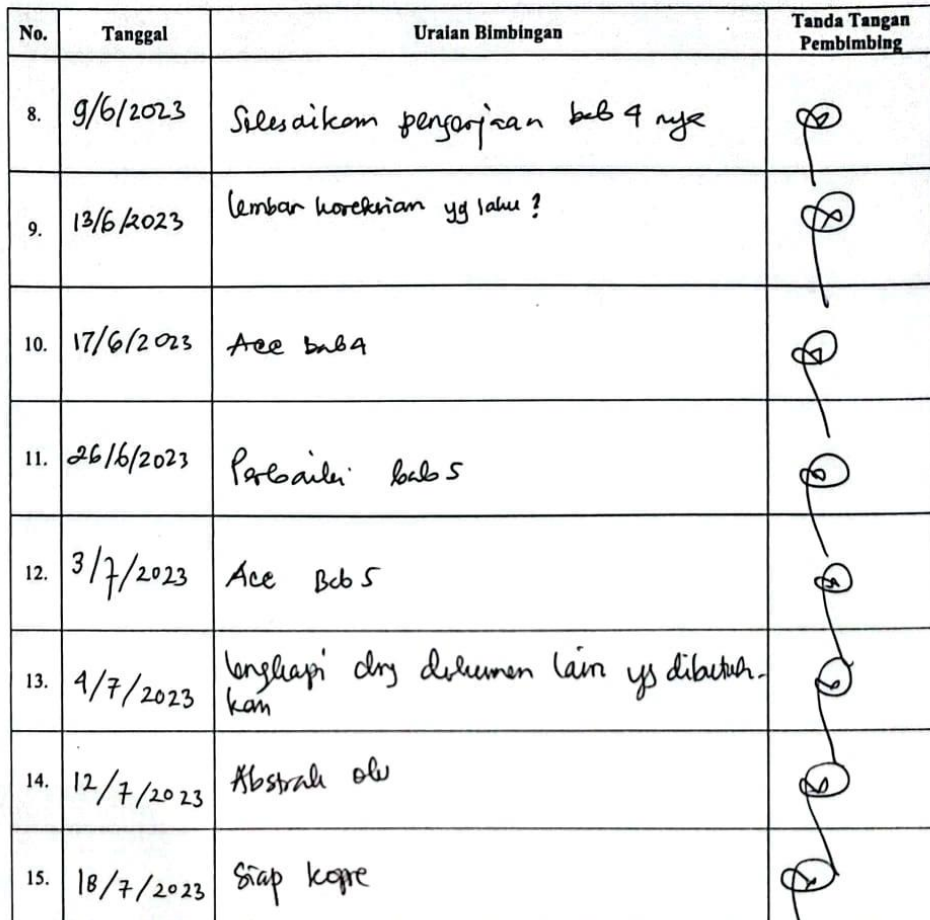 No. Tanggal Uraian Bimbingan Tanda Tangan
Pembimbing
8. 9/6/2023 Selesaikan pengerjaan bab 4 nya
9. 13/6/2023 lembar koreksian yg lalu?
10. 17/6/2023 Acc bab 4
11. 26/6/2023 Perbaiki bab 5
12. 3/7/2023 Acc Bab 5
13. 4/7/2023 lengkapi dng dokumen lain yg dibutuh-
kan
14. 12/7/2023 Abstrak
15. 18/7/2023 Siap